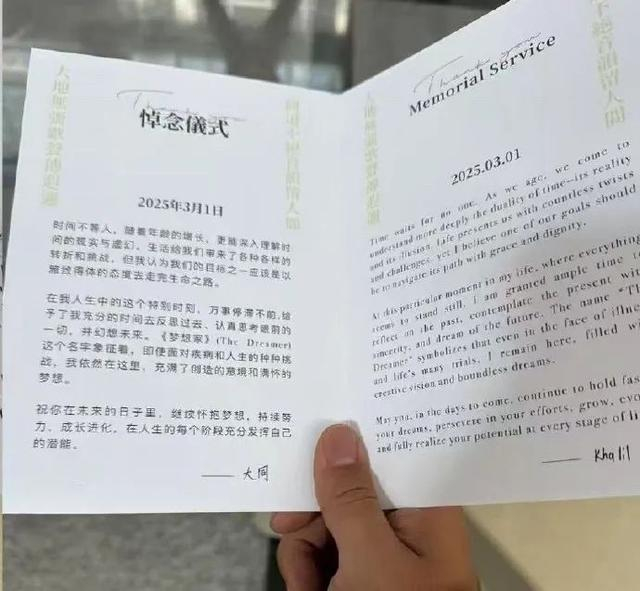 Thank you
悼念儀式
2025年3月1日
时间不等人，随着年龄的增长，更能深入理解时
间的现实与虚幻。生活给我们带来了各种各样的
转折和挑战，但我认为我们的目标之一应该是以
雅致得体的态度去走完生命之路。
在我人生中的这个特别时刻，万事停滞不前，给
予了我充分的时间去反思过去、认真思考眼前的
一切，并幻想未来。《梦想家》(The Dreamer)
这个名字象征着，即便面对疾病和人生的种种挑
战，我依然在这里，充满了创造的意境和清怀的
梦想。
祝你在未来的日子里，继续怀抱梦想，持续努
力、成长进化，在人生的每个阶段充分发挥自己
的潜能。
—— 大同
Thank you
Memorial Service
2025.03.01
Time waits for no one. As we age, we come to
understand more deeply the duality of time—its reality
and its illusion. Life presents us with countless twists
and challenges, yet I believe one of our goals should
be to navigate its path with grace and dignity.
At this particular moment in my life, where everything
seems to stand still, I am granted ample time to
reflect on the past, contemplate the present with
sincerity, and dream of the future. The name “The
Dreamer” symbolizes that even in the face of illness
and life's many trials, I remain here, filled with
creative vision and boundless dreams.
May you, in the days to come, continue to hold fast
your dreams, persevere in your efforts, grow,
and fully realize your potential at every stage of
—— Khalil